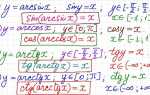 y=arcsinx, siny=x, y∈[-π/2; π/2]
sin(arcsinx)=x x∈[-1;
y=arccosx, y∈[0;π] cosy=x
cos(arccosx)=x x∈[-1;
y=arctgx, y∈(-π/2; π/2) tgy=x
tg(arctgx)=x x∈(-∞;+∞)
y=arcctgx, y∈(0;π) ctgy=x
ctg(arcctgx)=x x∈(-∞;+∞